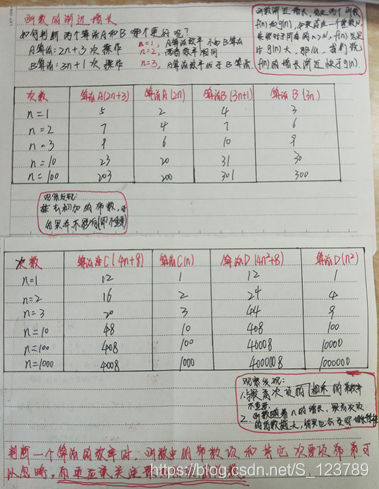 函数的渐近增长
如何判断两个算法A和B哪个更好呢?
A算法:2n+3次操作
B算法:3n+1次操作
n=1, A算法效率不如B算法
n=2, 两者效率相同
n=3, A算法效率优于B算法
函数渐近增长:给定两个函数
f(n)和g(n),如果存在一个整数N
使得对于所有的n>N, f(n)总是
比g(n)大,那么,我们说
f(n)的增长渐近快于g(n).
次数 算法A(2n+3) 算法A(2n) 算法B(3n+1) 算法B(3n)
n=1 5 2 4 3
n=2 7 4 7 6
n=3 9 6 10 9
n=10 23 20 31 30
n=100 203 200 301 300
观察发现:
次数 算法C(4n+8) 算法C(n) 算法D(4n²+8) 算法D(n²)
n=1 12 1 12 1
n=2 16 2 24 4
n=3 20 3 44 9
n=10 48 10 408 100
n=100 408 100 40008 10000
n=1000 4008 1000 4000008 1000000
观察发现:
1. 最高次项的相乘的常数
不重要
2. 函数随着n的增长,最高次项
判断一个算法的效率时,函数中的常数项和其它次要项常常可
以忽略,而更应该关注
https://blog.csdn.net/S_123789